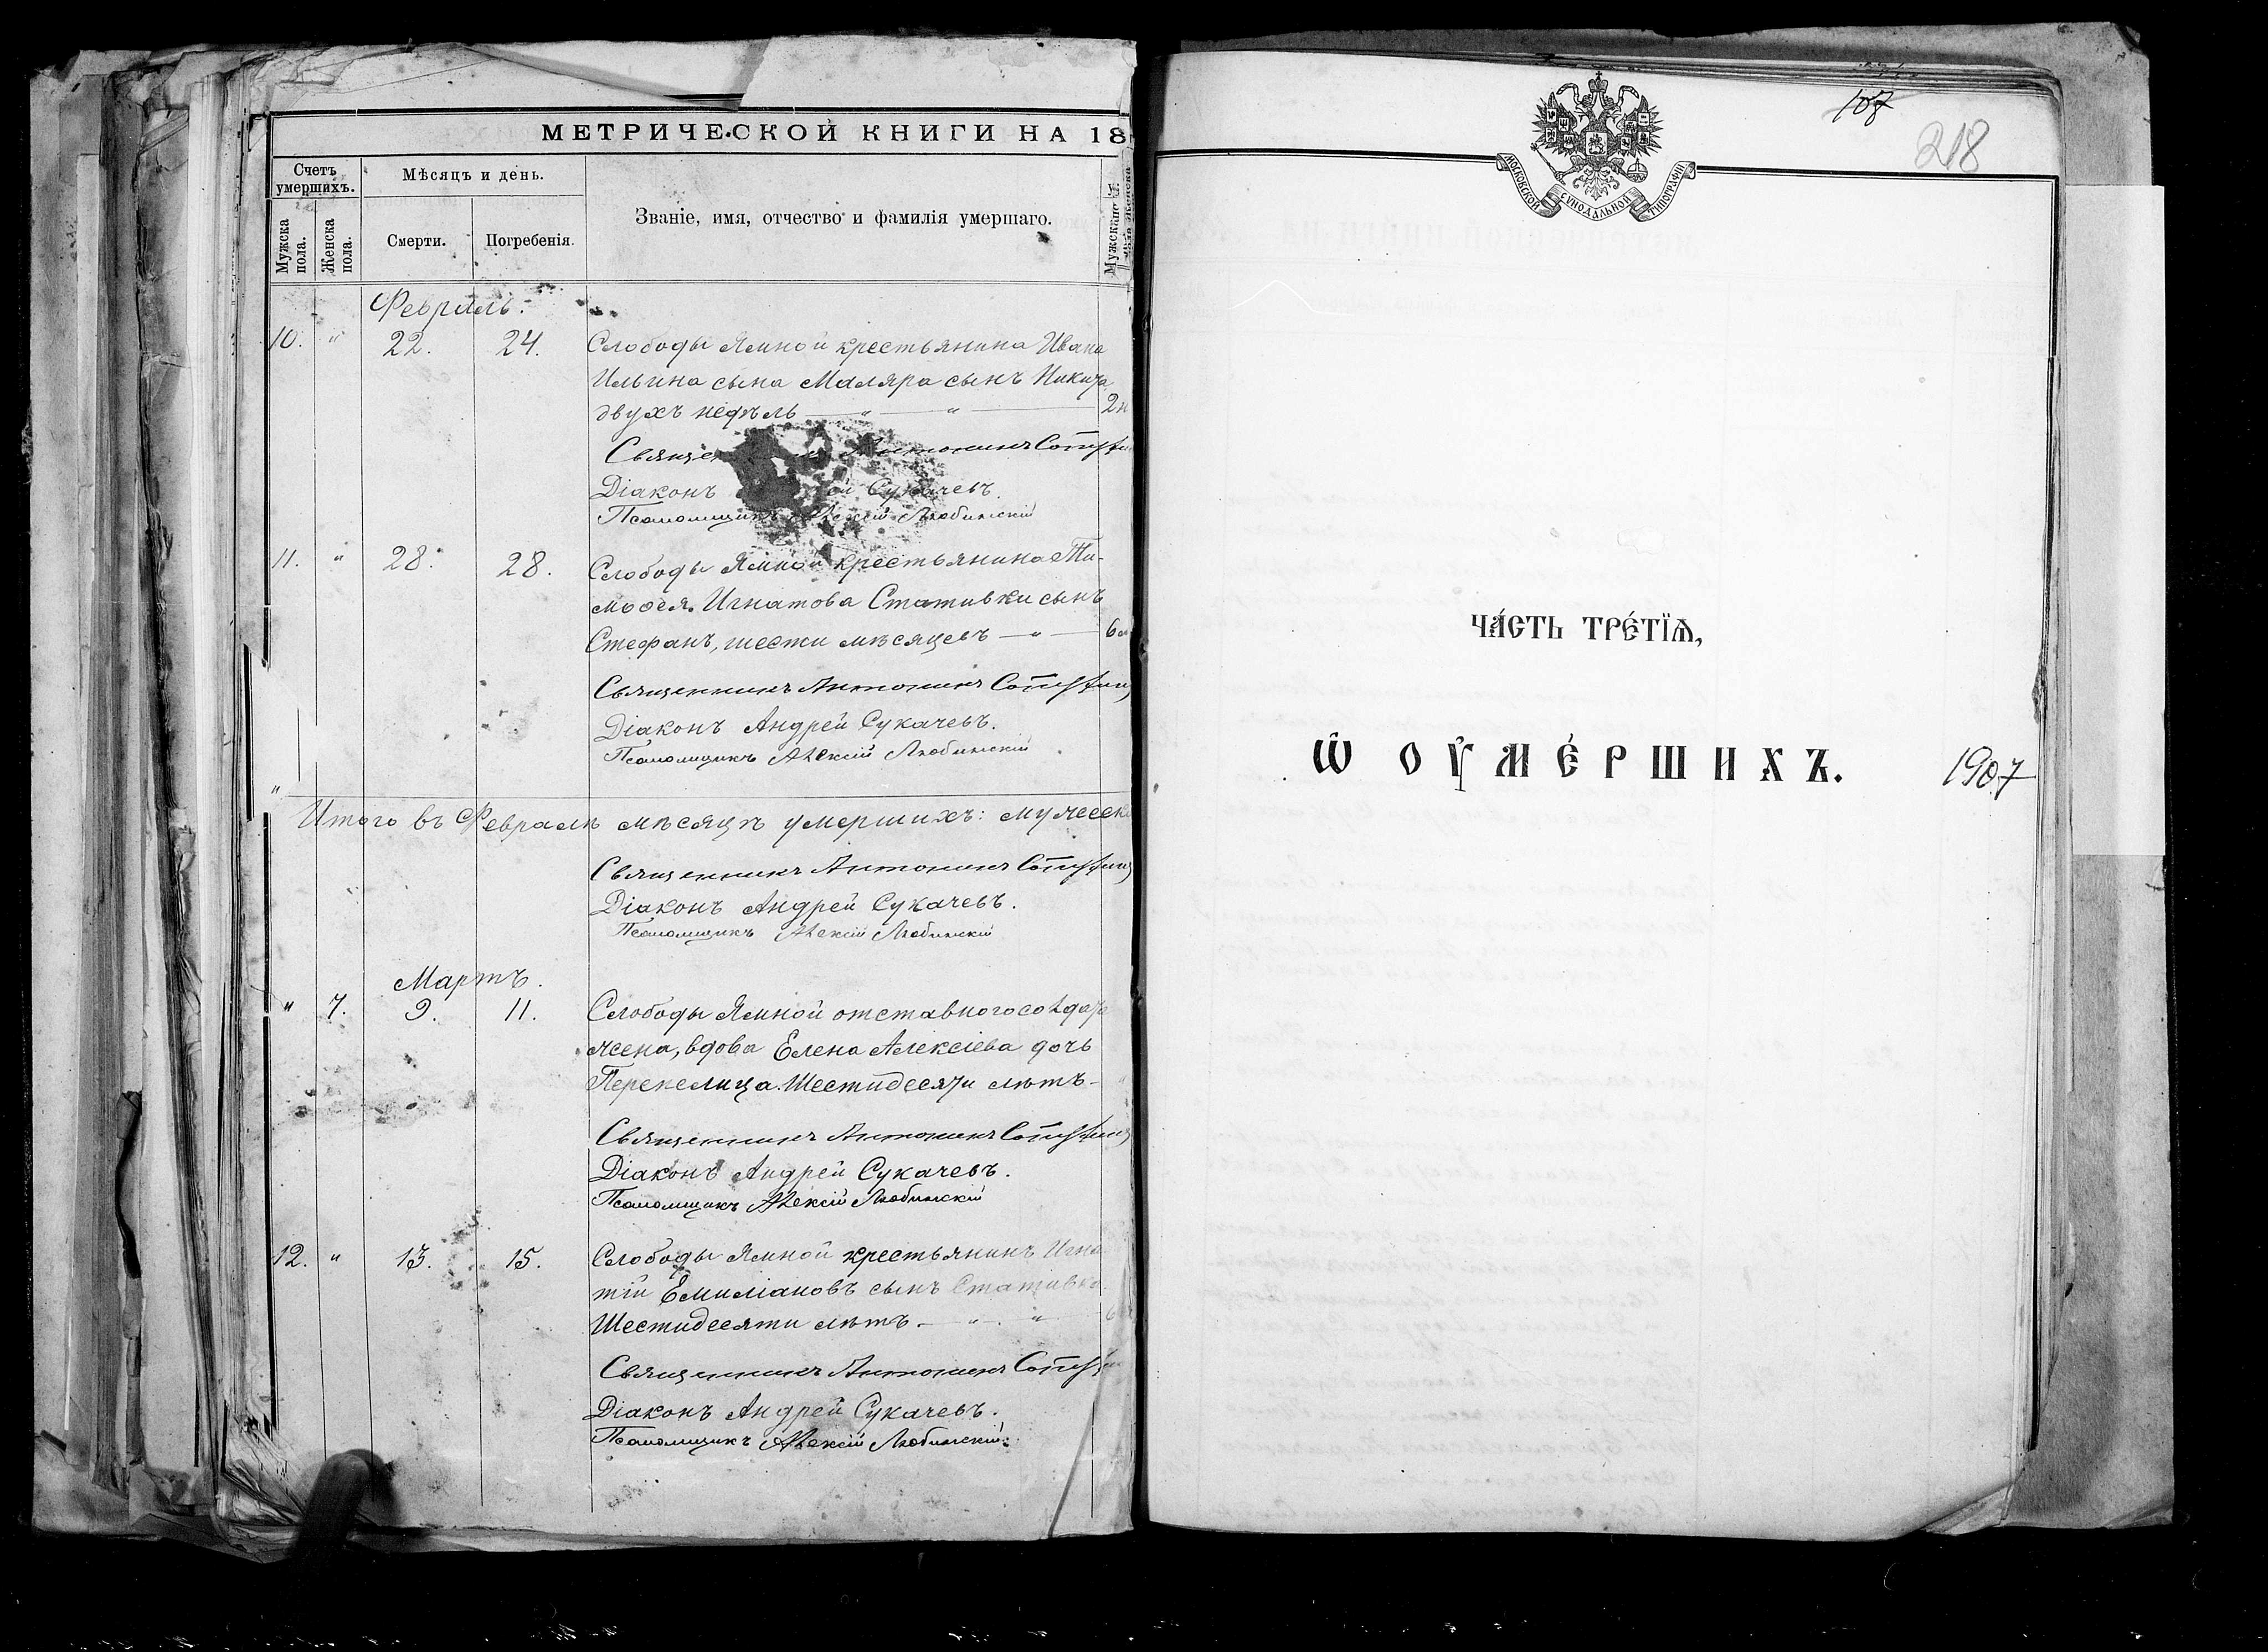 МЕТРИЧЕСКОЙ КНИГИ НА 18
Счетъ умершихъ.
Мѣсяцъ и день.
Званіе, имя, отчество и фамилія умершаго.
Мужска пола.
Женска пола.
Смерти.
Погребенія.
Мужскаго
Февраль.
10. " 22. 24. Слободы Ямной крестьянина Ивана
Ильина сына Маляра сынъ Никита
двухъ недѣль — " — " — 2н
Антонинъ
Діаконъ Сукачевъ.
Псаломщикъ Алексій Любинскій
11. " 28. 28. Слободы Ямной крестьянина Ти-
моѳея Игнатова Стативки сынъ
Стефанъ, шести мѣсяцевъ — " — 6м
Священникъ Антонинъ
Діаконъ Андрей Сукачевъ.
Псаломщикъ Алексій Любинскій
Итого въ Февралѣ мѣсяцѣ умершихъ: мужеск
Священникъ Антонинъ
Діаконъ Андрей Сукачевъ.
Псаломщикъ Алексій Любинскій
Мартъ.
" 7. 9. 11. Слободы Ямной отставного солдата
жена, вдова Елена Алексіева дочь
Перепелица. Шестидесяти лѣтъ -
Священникъ Антонинъ
Діаконъ Андрей Сукачевъ.
Псаломщикъ Алексій Любинскій
12. " 13. 15. Слободы Ямной крестьянинъ Игна
тій Емиліановъ сынъ Стативка
Шестидесяти лѣтъ. — " — "
Священникъ Антонинъ
Діаконъ Андрей Сукачевъ.
Псаломщикъ Алексій Любинскій
107
218
МОСКОВСКОЙ СѴНОДАЛЬНОЙ ТИПОГРАФІИ
ЧА́СТЬ ТРЕ́ТЇѦ,
Ѡ ОУ҆МЕ́РШИХЪ.
1907